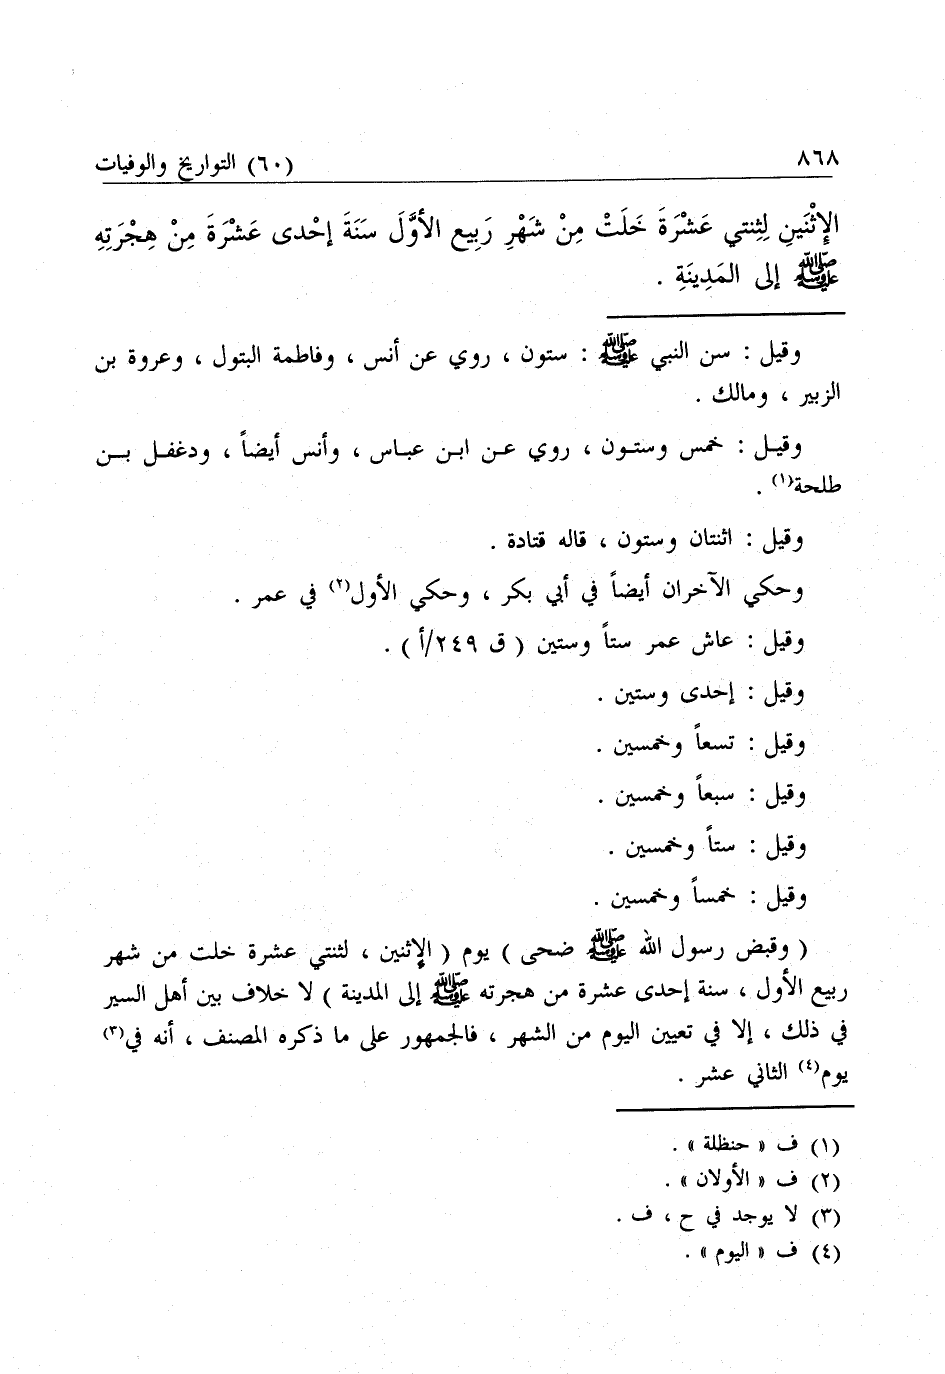 ٨٦٨
(٦٠) التواريخ والوفيات
الإثْنَينِ لِثِنتي عَشْرَةَ خَلَتْ مِنْ شَهْرِ رَبِيع الأوَّلَ سَنَةَ إحْدى عَشْرَةَ مِنْ هِجْرَتِهِ
ﷺ إلى المَدِينَةِ .
وقيل : سن النبي ﷺ : ستون ، روي عن أنس ، وفاطمة البتول ، وعروة بن
الزبير ، ومالك .
وقيل : خمس وستون ، روي عن ابن عباس ، وأنس أيضاً ، ودغفل بن
طلحة(١) .
وقيل : اثنتان وستون ، قاله قتادة .
وحكي الآخران أيضاً في أبي بكر ، وحكي الأول(٢) في عمر .
وقيل : عاش عمر ستاً وستين ( ق ٢٤٩/أ ) .
وقيل : إحدى وستين .
وقيل : تسعاً وخمسين .
وقيل : سبعاً وخمسين .
وقيل : ستاً وخمسين .
وقيل : خمساً وخمسين .
( وقبض رسول الله ﷺ ضحى ) يوم ( الإثنين ، لثنتي عشرة خلت من شهر
ربيع الأول ، سنة إحدى عشرة من هجرته ﷺ إلى المدينة ) لا خلاف بين أهل السير
في ذلك ، إلا في تعيين اليوم من الشهر ، فالجمهور على ما ذكره المصنف ، أنه في(٣)
يوم(٤) الثاني عشر .
(١) ف « حنظلة » .
(٢) ف « الأولان » .
(٣) لا يوجد في ح ، ف .
(٤) ف « اليوم » .